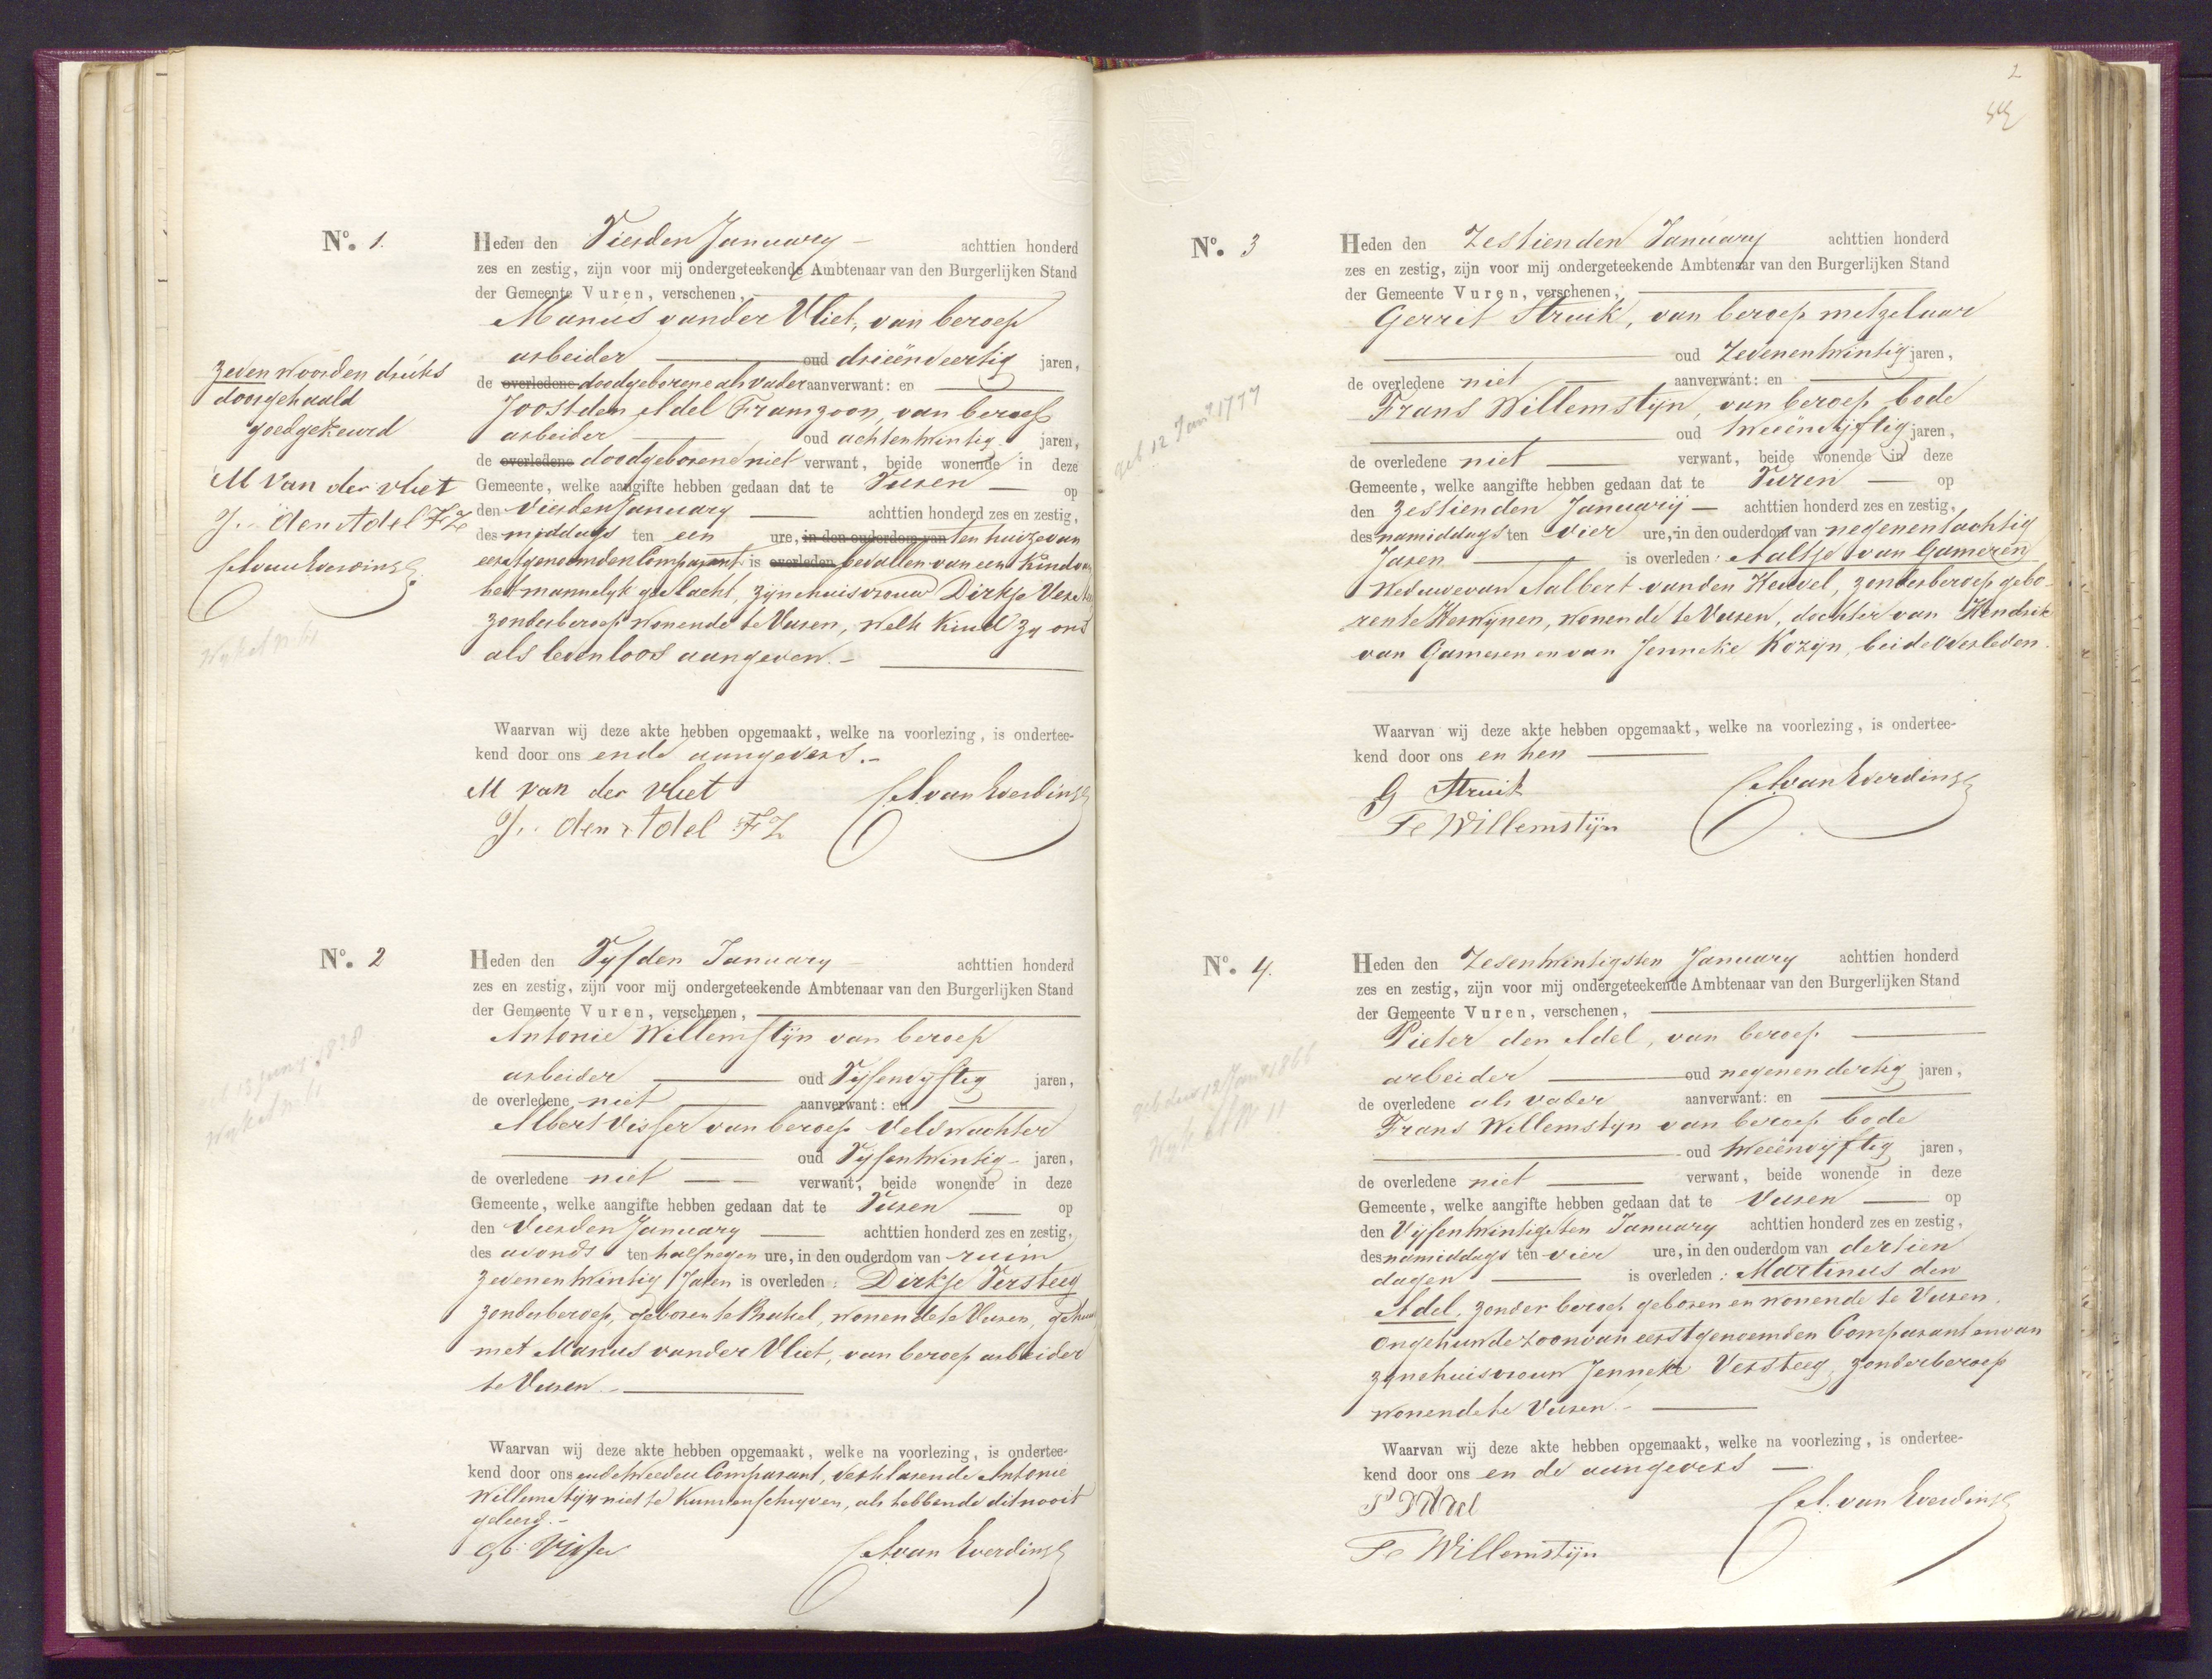 No. 1.
Heden den Vierden January – achttien honderd
zes en zestig, zijn voor mij ondergeteekende Ambtenaar van den Burgerlijken Stand
der Gemeente Vuren, verschenen,
Manus vander Vliet, van beroep
arbeider oud drieënveertig jaren,
de overledene doodgeborene als vader aanverwant: en
Joost den Adel Franszoon, van beroep
arbeider oud achtentwintig jaren,
de overledene doodgeborene niet verwant, beide wonende in deze
Gemeente, welke aangifte hebben gedaan dat te Vuren – op
den Vierden January achttien honderd zes en zestig,
des middags ten een ure, in den ouderdom van ten huize van
eerstgenoemden Comparant is overleden bevallen van een Kind van
het mannelyk geslacht, zijne huisvrouw Dirkje Versteeg
zonder beroep wonende te Vuren, welk Kind zy ons
als levenloos aangeven. –
Waarvan wij deze akte hebben opgemaakt, welke na voorlezing, is ondertee-
kend door ons en de aangevers. –
M van der vliet
J. den Adel FZ
zeven woorden druks
doorgehaald
goedgekeurd
M Van der vliet
J. den Adel FZ
No. 2
Heden den Vyfden January – achttien honderd
zes en zestig, zijn voor mij ondergeteekende Ambtenaar van den Burgerlijken Stand
der Gemeente Vuren, verschenen,
Antonie Willemstijn van beroep
arbeider oud Vijfenvyftig jaren,
de overledene niet aanverwant: en
Albert Visser van beroep Veldwachter
oud Vyfentwintig – jaren,
de overledene niet verwant, beide wonende in deze
Gemeente, welke aangifte hebben gedaan dat te Vuren op
den Vierden January achttien honderd zes en zestig,
des avonds ten half negen ure, in den ouderdom van ruim
zevenentwintig Jaren is overleden: Dirkje Versteeg
zonder beroep, geboren te Brakel, wonende te Vuren, gehuwd
met Manus vander Vliet, van beroep arbeider
te Vuren. –
Waarvan wij deze akte hebben opgemaakt, welke na voorlezing, is ondertee-
kend door ons en de tweeden Comparant, verklarende Antonie
Willemstijn niet te Kunnen schryven, als hebbende dit nooit
geleerd. –
Ab. Visser
2
No. 3
Heden den Zestienden January achttien honderd
zes en zestig, zijn voor mij ondergeteekende Ambtenaar van den Burgerlijken Stand
der Gemeente Vuren, verschenen,
Gerrit Struik, van beroep metzelaar
oud Zevenentwintig jaren,
de overledene niet aanverwant: en
Frans Willemstijn, van beroep bode
oud tweeënvijftig jaren,
de overledene niet verwant, beide wonende in deze
Gemeente, welke aangifte hebben gedaan dat te Vuren – op
den Zestienden January – achttien honderd zes en zestig,
des namiddags ten vier ure, in den ouderdom van negenentachtig
Jaren is overleden: Aaltje van Gameren
Weduwe van Aalbert vanden Heuvel, zonder beroep gebo-
ren te Herwynen, wonende te Vuren, dochter van Hendrik
van Gameren en van Jenneke Kozyn, beide overleden.
Waarvan wij deze akte hebben opgemaakt, welke na voorlezing, is ondertee-
kend door ons en hen
G Struik
Fs Willemstijn
geb. 12 Jany 1777
No. 4.
Heden den Zesentwintigsten January achttien honderd
zes en zestig, zijn voor mij ondergeteekende Ambtenaar van den Burgerlijken Stand
der Gemeente Vuren, verschenen,
Pieter den Adel, van beroep
arbeider oud negenendertig jaren,
de overledene als vader aanverwant: en
Frans Willemstyn van beroep bode
oud tweeënvijftig jaren,
de overledene niet verwant, beide wonende in deze
Gemeente, welke aangifte hebben gedaan dat te Vuren – op
den Vyfentwintigsten January achttien honderd zes en zestig,
des namiddags ten vier ure, in den ouderdom van dertien
dagen is overleden: Martinus den
Adel, zonder beroep geboren en wonende te Vuren,
ongehuwde zoon van eerstgenoemden Comparant en van
zijne huisvrouw Jenneke Versteeg, zonder beroep
wonende te Vuren. –
Waarvan wij deze akte hebben opgemaakt, welke na voorlezing, is ondertee-
kend door ons en de aangevers –
Fs Willemstijn